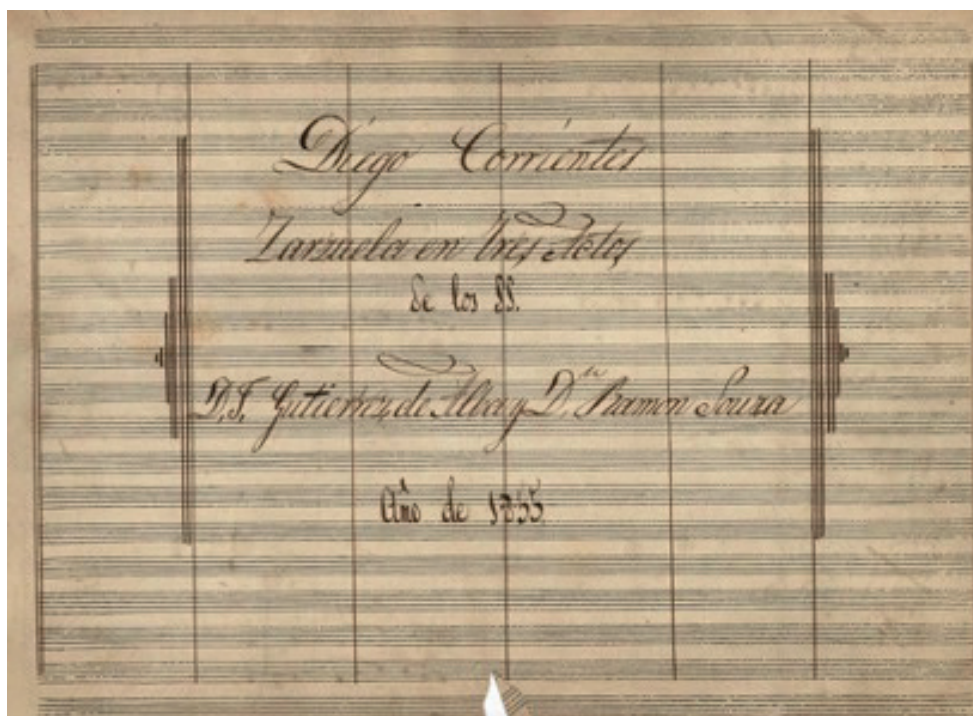 Diego Corrientes
Zarzuela en Tres Actos
de los SS.
D. J. Gutierrez de Alba y D.n Ramon Souza
Año de 1855